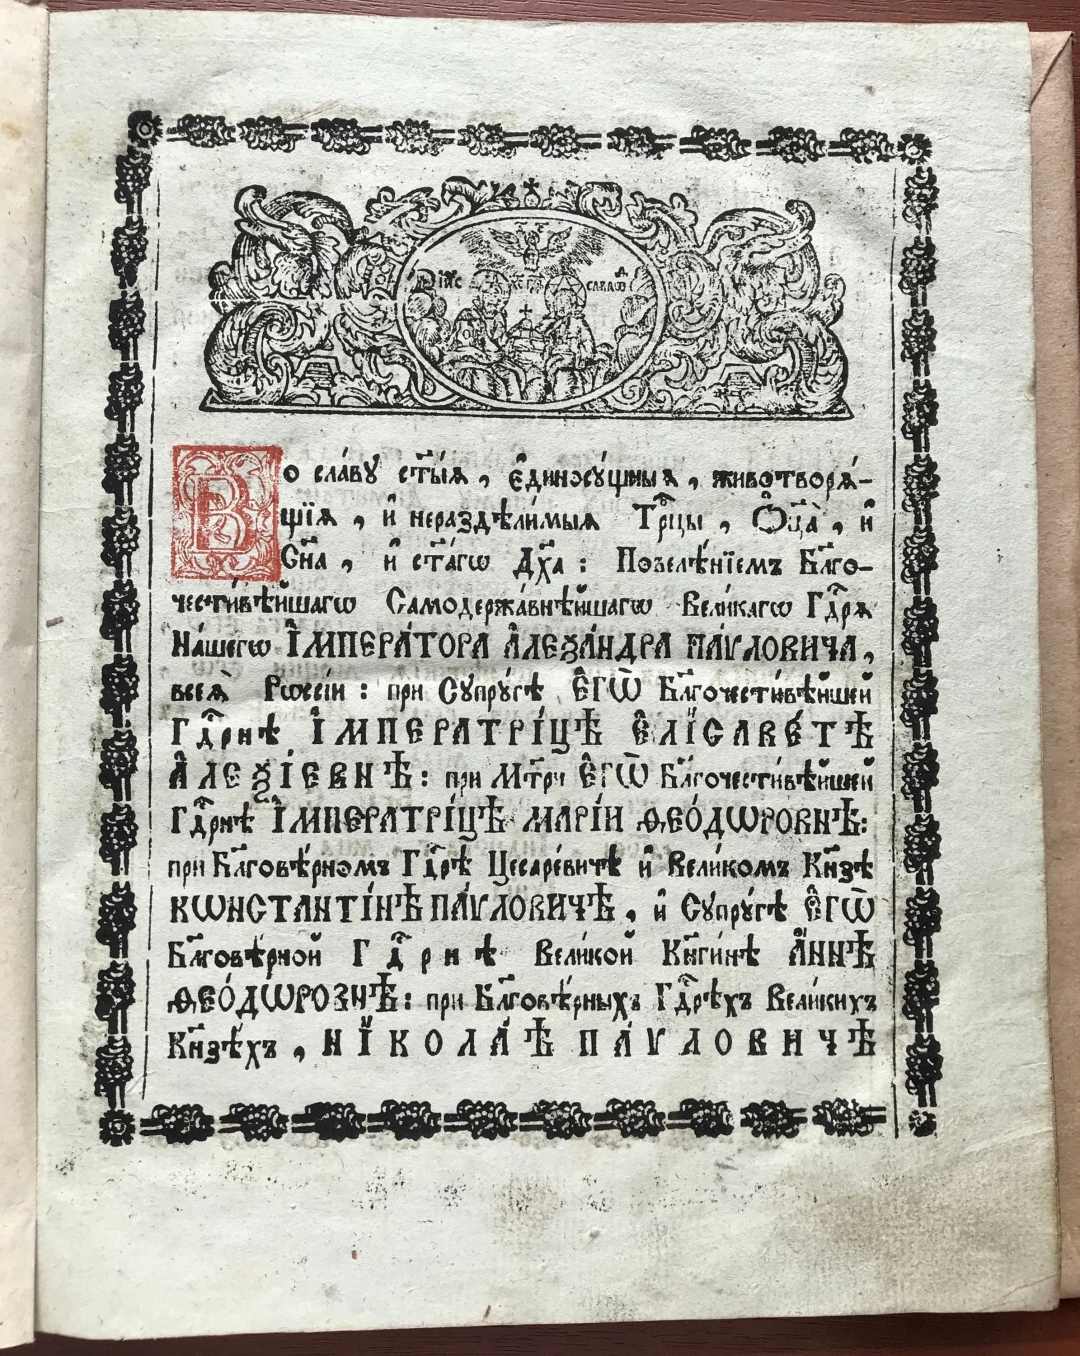 І҆И҃С Х҆С СѢ СаваѡѲ
Во сла́вꙋ ст҃ы́ѧ, є҆диносꙋ́щныѧ, животворѧ́-
щїѧ, и҆ нераздѣли́мыѧ Трⷪ҇цы, Ѻ҆ц҃а̀, и҆
Сн҃а, и҆ ст҃а́гѡ Дх҃а: Повелѣ́нїемъ Бл҃го-
чести́вѣйшагѡ Самодержа́внѣйшагѡ Вели́кагѡ Гдⷭ҇рѧ
На́шегѡ І҆МПЕРА́ТОРА А҆ЛЕѮА́НДРА ПА́ѴЛОВИЧА,
всеѧ̀ Рѡссі́и: при Сꙋпрꙋ́гѣ Є҆ГѠ̀ Бл҃гочести́вѣйшей
Гдⷭ҇рнѣ І҆МПЕРАТРІ́ЦѢ Є҆ЛІСАВЕ́ТѢ
А҆ЛЕѮІ́ЕВНѢ: при Мт҃ри Є҆ГѠ̀ Бл҃гочести́вѣйшей
Гдⷭ҇рнѣ І҆МПЕРАТРІ́ЦѢ МАРІ́И ѲЕО́ДѠРОВНѢ:
при Бл҃говѣ́рномъ Гдⷭ҇рѣ Цесаре́вичѣ и҆ Вели́комъ Кн҃зѣ
КѠНСТАНТІ́НѢ ПА́ѴЛОВИЧѢ, и҆ Сꙋпрꙋ́гѣ Є҆ГѠ̀
Бл҃говѣ́рной Гдⷭ҇рнѣ Вели́кой Кн҃ги́нѣ А҆́ННѢ
ѲЕО́ДѠРОВНѢ: при Бл҃говѣ́рныхъ Гдⷭ҇рѣхъ Вели́кихъ
Кн҃зѣ́хъ, НІКОЛА́Ѣ ПА́ѴЛОВИЧѢ